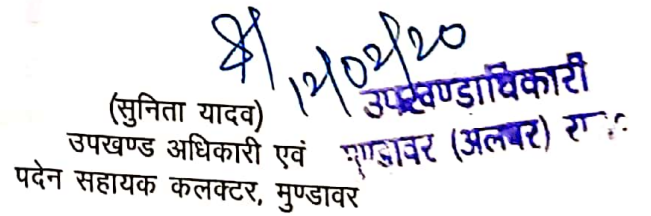 12/02/20
(सुनिता यादव)
उपखण्ड अधिकारी एवं
पदेन सहायक कलक्टर, मुण्डावर
उपखण्डाधिकारी
मुण्डावर (अलवर)